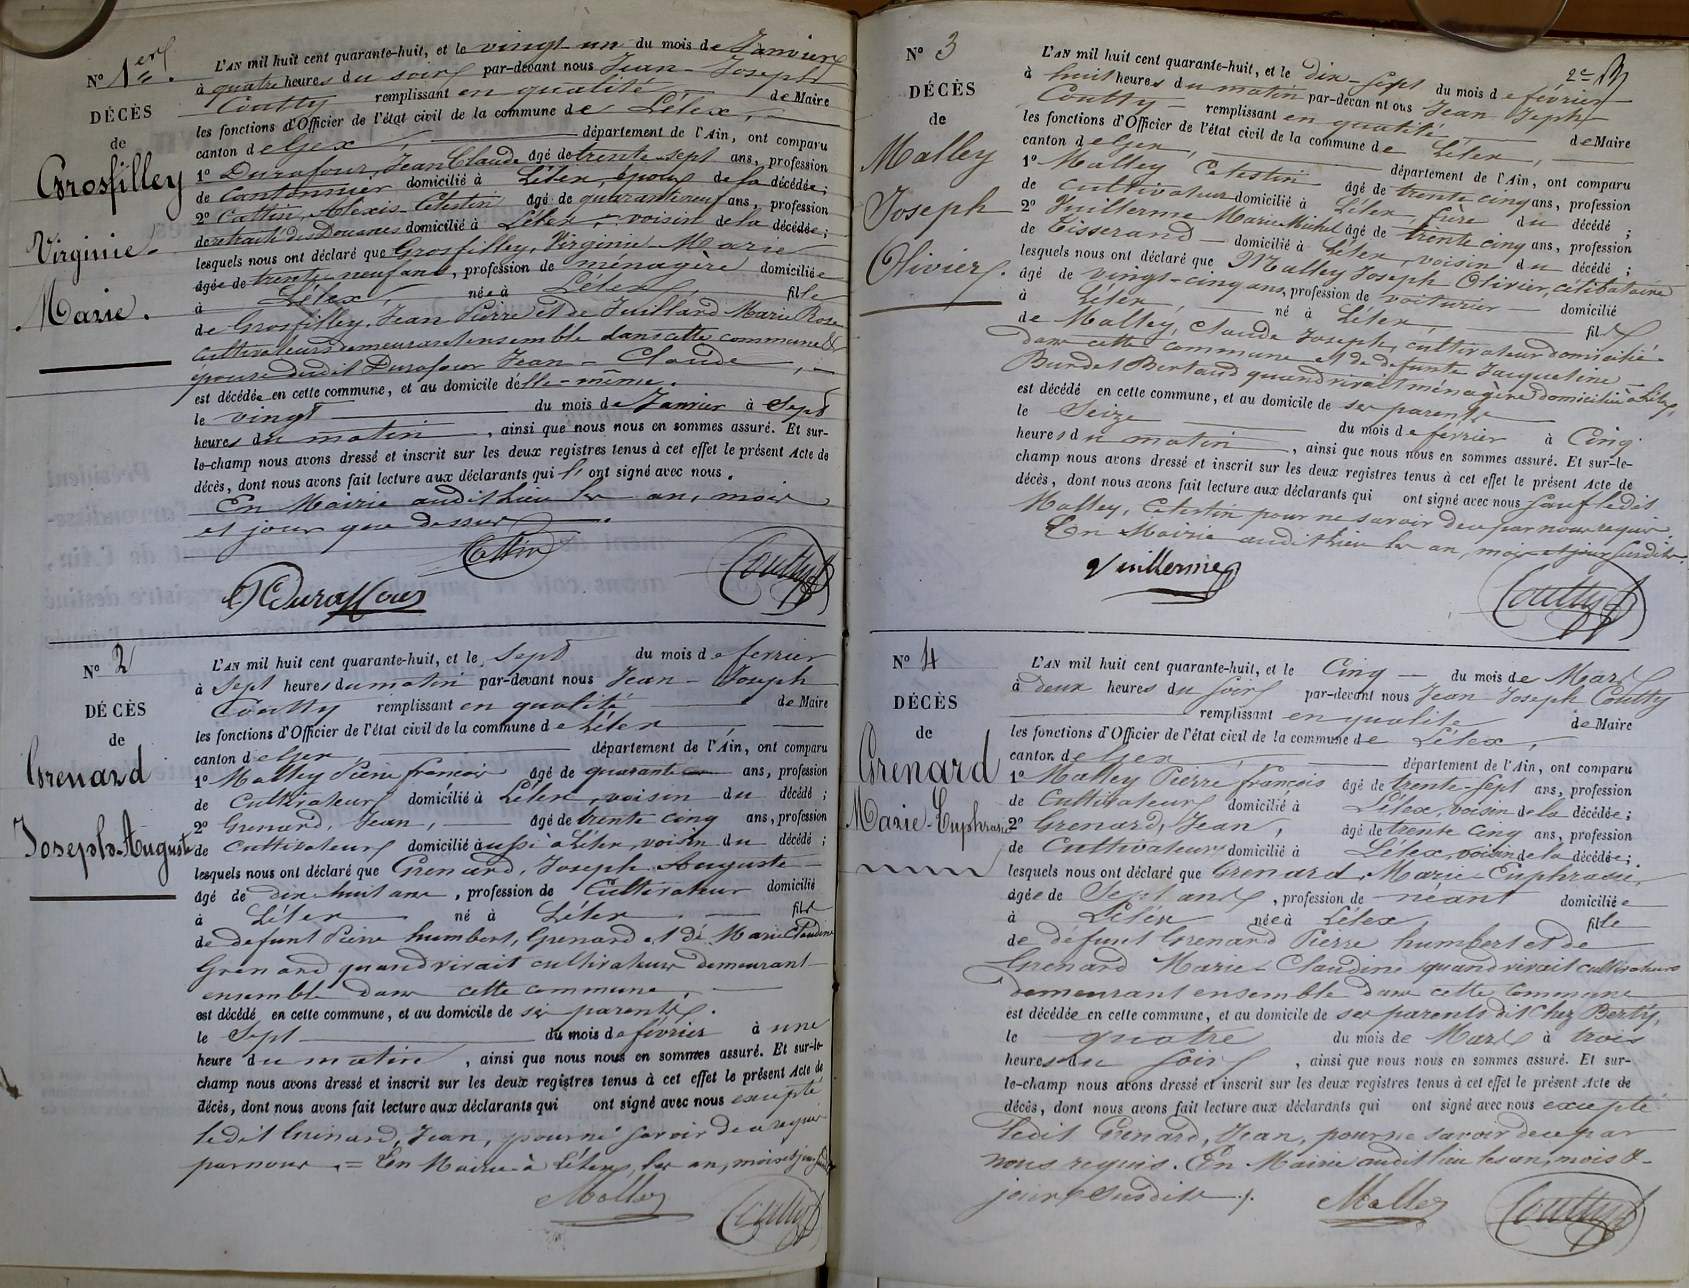 N° 1er.
DÉCÈS
de
Grosfilley
Virginie
Marie.
L'AN mil huit cent quarante-huit, et le vingt un du mois de Janvier
à quatre heures du soir par-devant nous Jean-Joseph
Coutty remplissant en qualité de Maire
les fonctions d'Officier de l'état civil de la commune de Lélex,
canton de Gex, département de l'Ain, ont comparu
1° Durafour, Jean Claude âgé de trente-sept ans, profession
de Cantonnier domicilié à Lélex, époux de la décédée;
2° Cattin, Alexis-Célestin âgé de quarante neuf ans, profession
de retraité des Douanes domicilié à Lélex, voisin de la décédée;
lesquels nous ont déclaré que Grosfilley, Virginie Marie
âgée de trente neuf ans, profession de ménagère domiciliée
à Lélex, née à Lélex, fille
de Grosfilley, Jean Pierre et de Juillard Marie Rose
cultivateurs demeurant ensemble dans cette commune &
épouse dudit Durafour Jean-Claude,
est décédée en cette commune, et au domicile d'elle-même.
le vingt du mois de Janvier à Sept
heures du matin, ainsi que nous nous en sommes assuré. Et sur-
le-champ nous avons dressé et inscrit sur les deux registres tenus à cet effet le présent Acte de
décès, dont nous avons fait lecture aux déclarants qui l' ont signé avec nous.
En Mairie audit lieu les an, mois
et jour que dessus.
Cattin
Coutty
Duraffour
N° 2
DÉCÈS
de
Grenard
Joseph-Auguste
L'AN mil huit cent quarante-huit, et le Sept du mois de fevrier
à Sept heures du matin par-devant nous Jean-Joseph
Coutty remplissant en qualité de Maire
les fonctions d'Officier de l'état civil de la commune de Lélex
canton de Gex département de l'Ain, ont comparu
1° Malley Pierre françois âgé de quarante ans, profession
de Cultivateur domicilié à Lélex, voisin du décédé;
2° Grenard, Jean, âgé de trente cinq ans, profession
de Cultivateur domicilié aussi à Lélex, voisin du décédé;
lesquels nous ont déclaré que Grenard, Joseph Auguste
âgé de dix huit ans, profession de Cultivateur domicilié
à Lélex né à Lélex fils
de défunt Pierre humbert, Grenard et de Marie Claudine
Grenard quand vivait cultivateur demeurant
ensemble dans cette commune,
est décédé en cette commune, et au domicile de ses parents.
le Sept du mois de février à une
heure du matin, ainsi que nous nous en sommes assuré. Et sur-le-
champ nous avons dressé et inscrit sur les deux registres tenus à cet effet le présent Acte de
décès, dont nous avons fait lecture aux déclarants qui ont signé avec nous excepté
ledit Grenard, Jean, pour ne savoir de ce requis
par nous. = En Mairie à Lélex, les an, mois et jour
Malley
Coutty
2e
N° 3
DÉCÈS
de
Malley
Joseph
Olivier.
L'AN mil huit cent quarante-huit, et le dix-sept du mois de février
à huit heures du matin par-devant nous Jean Joseph
Coutty remplissant en qualité de Maire
les fonctions d'Officier de l'état civil de la commune de Lélex,
canton de Gex, département de l'Ain, ont comparu
1° Malley Célestin âgé de trente cinq ans, profession
de cultivateur domicilié à Lélex, frère du décédé;
2° Vuillerme Marie Michel âgé de trente cinq ans, profession
de Tisserand domicilié à Lélex, voisin du décédé;
lesquels nous ont déclaré que Malley Joseph Olivier, célibataire
âgé de vingt-cinq ans, profession de voiturier domicilié
à Lélex né à Lélex, fils
de Malley, Claude Joseph, cultivateur domicilié
dans cette commune et de défunte Jacqueline
Burdet Bertaud quand vivait ménagère domiciliée à Lélex,
est décédé en cette commune, et au domicile de ses parents
le Seize du mois de février à Cinq
heures du matin, ainsi que nous nous en sommes assuré. Et sur-le-
champ nous avons dressé et inscrit sur les deux registres tenus à cet effet le présent Acte de
décès, dont nous avons fait lecture aux déclarants qui ont signé avec nous sauf ledit
Malley, Célestin pour ne savoir de ce par nous requis.
En Mairie audit lieu les an, mois et jour susdits.
Vuillerme
Coutty
N° 4
DÉCÈS
de
Grenard
Marie-Euphrasie
L'AN mil huit cent quarante-huit, et le Cinq du mois de Mars
à deux heures du soir par-devant nous Jean-Joseph Coutty
remplissant en qualité de Maire
les fonctions d'Officier de l'état civil de la commune de Lélex,
canton de Gex, département de l'Ain, ont comparu
1° Malley Pierre françois âgé de trente-sept ans, profession
de Cultivateur domicilié à Lélex, voisin de la décédée;
2° Grenard, Jean, âgé de trente cinq ans, profession
de Cultivateur domicilié à Lélex, voisin de la décédée;
lesquels nous ont déclaré que Grenard, Marie-Euphrasie,
âgée de Sept ans, profession de néant domiciliée
à Lélex née à Lélex, fille
de défunt Grenard Pierre humbert et de
Grenard Marie-Claudine quand vivait cultivateurs
demeurant ensemble dans cette commune
est décédée en cette commune, et au domicile de ses parents dit Chez Berty,
le quatre du mois de Mars à trois
heures du soir, ainsi que nous nous en sommes assuré. Et sur-
le-champ nous avons dressé et inscrit sur les deux registres tenus à cet effet le présent Acte de
décès, dont nous avons fait lecture aux déclarants qui ont signé avec nous excepté
ledit Grenard, Jean, pour ne savoir de ce par
nous requis. En Mairie audit lieu les an, mois &
jour susdits.
Malley
Coutty